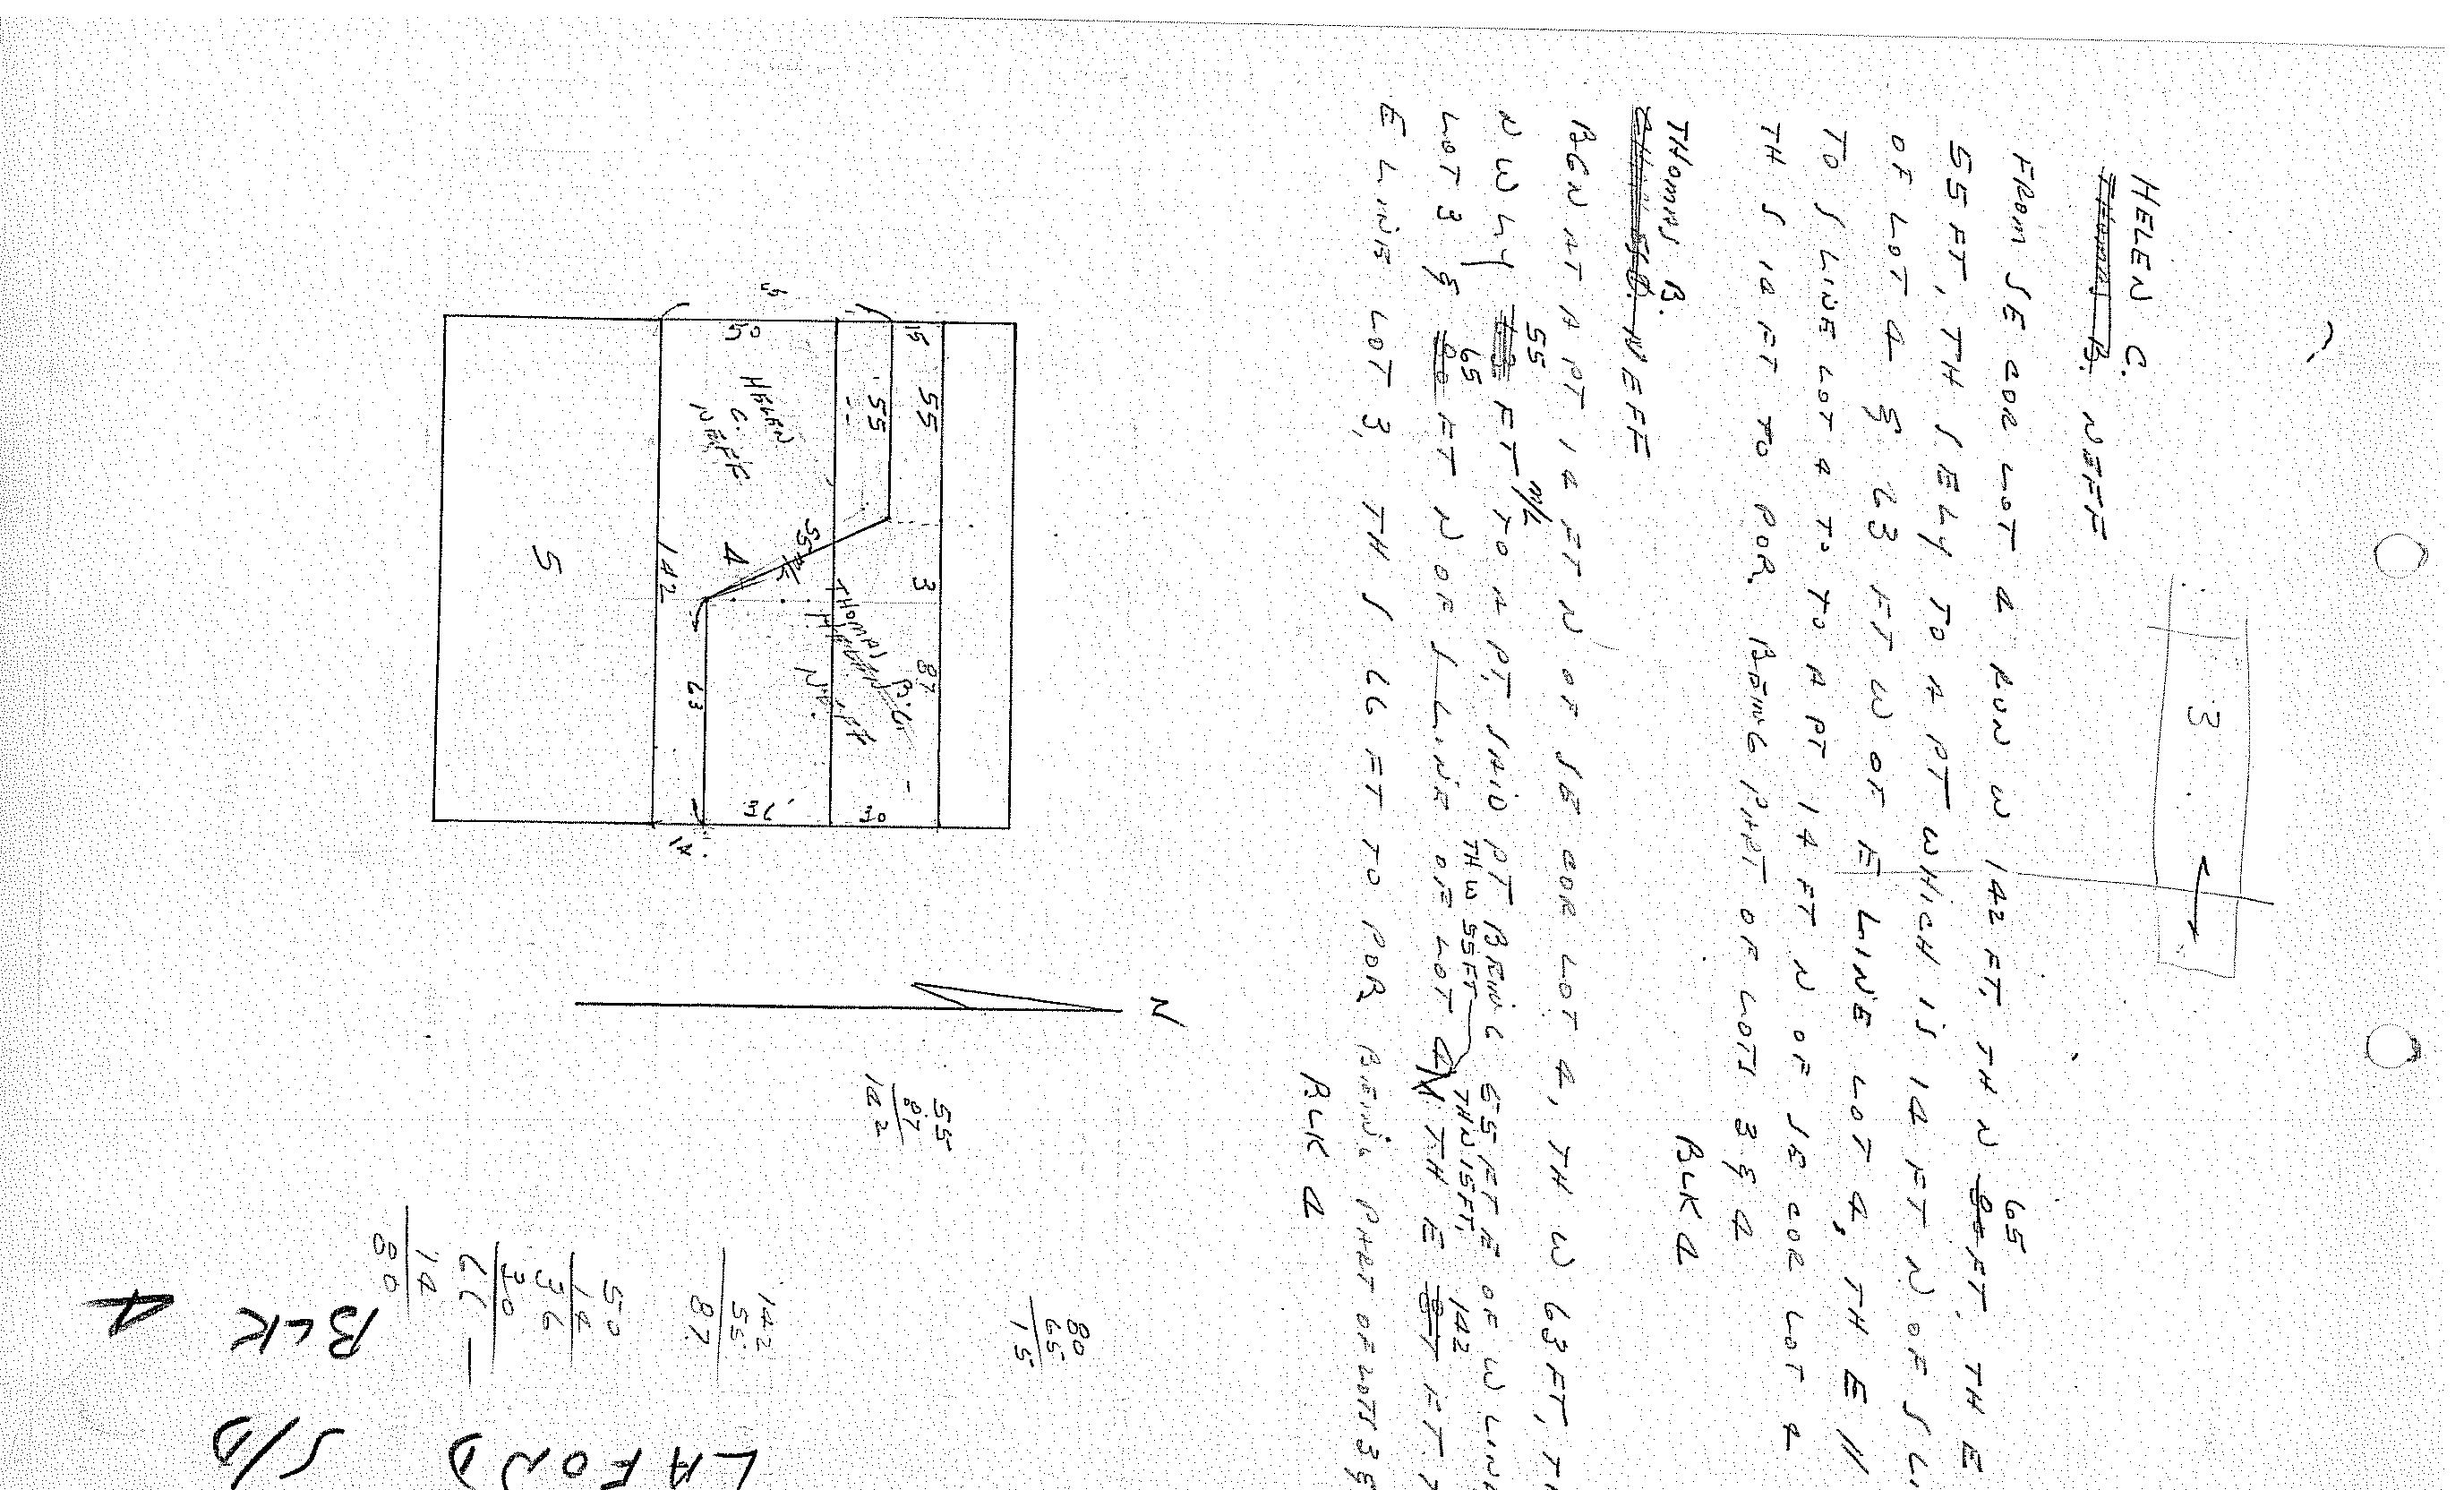 3
HELEN C.
THOMAS B. NEFF
FROM SE COR LOT 4 RUN W 142 FT, TH N 65 FT. TH E
55 FT, TH SELY TO A PT WHICH IS 14 FT N OF S LI
OF LOT 4 & 63 FT W OF E LINE LOT 4, TH E //
TO S LINE LOT 4 TO TO A PT 14 FT N OF SE COR LOT 4
TH S 14 FT TO POB. BEING PART OF LOTS 3 & 4
BLK 4
THOMAS B.
NEFF
BGN AT A PT 14 FT N OF SE COR LOT 4, TH W 63 FT, TH
NWLY 55 FT M/L TO A PT, SAID PT BEING 55 FT E OF W LINE
LOT 3 & 65 FT N OF S LINE OF LOT 4, TH W 55 FT TH N 15 FT, TH E 142 FT
E LINE LOT 3, TH S 66 FT TO POB BEING PART OF LOTS 3 &
BLK 4
15 55 3 87
55
30
50
HELEN
C.
NEFF
4
55 M/L
THOMAS
B.
NEFF
36
142
63
14
5
N
55
87
142
80
65
15
142
55
87
50
14
36
30
66
14
80
LAFOND
S/D
BLK
4